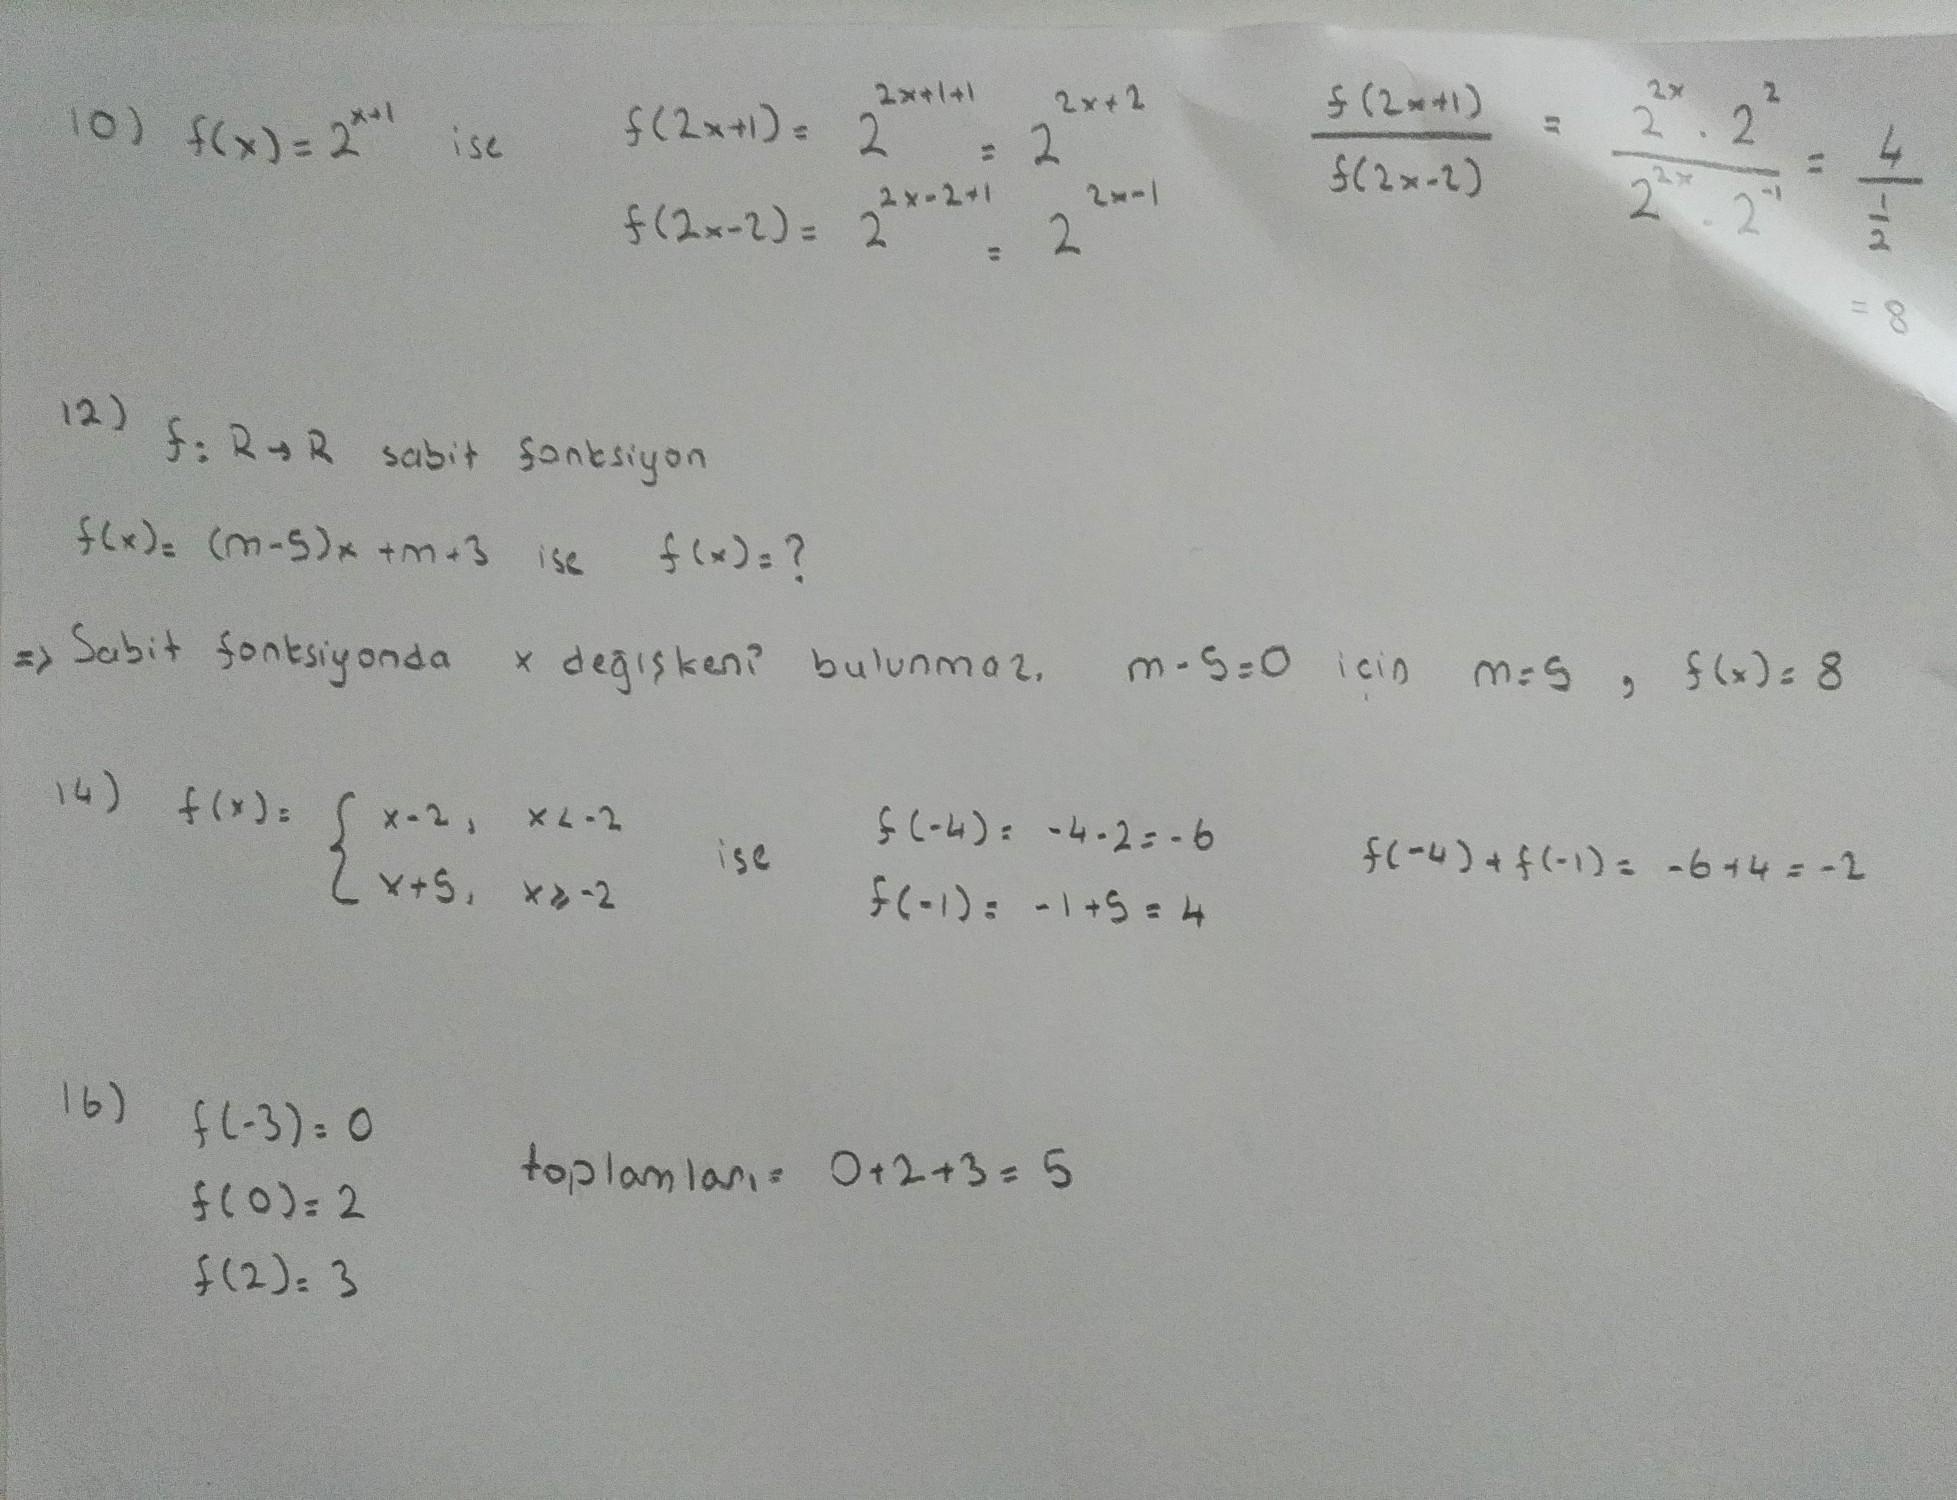 10) f(x) = 2^(x+1) ise f(2x+1) = 2^(2x+1+1) = 2^(2x+2) f(2x+1)/f(2x-2) = (2^(2x) . 2^2)/(2^(2x) . 2^(-1)) = 4/(1/2)
f(2x-2) = 2^(2x-2+1) = 2^(2x-1)
= 8
12) f: R → R sabit fonksiyon
f(x) = (m-5)x + m+3 ise f(x) = ?
=> Sabit fonksiyonda x değişkeni bulunmaz. m-5=0 için m=5, f(x) = 8
14) f(x) = { x-2, x < -2 ise f(-4) = -4-2 = -6 f(-4) + f(-1) = -6+4 = -2
x+5, x ≥ -2 f(-1) = -1+5 = 4
16) f(-3) = 0
f(0) = 2 toplamları = 0+2+3 = 5
f(2) = 3